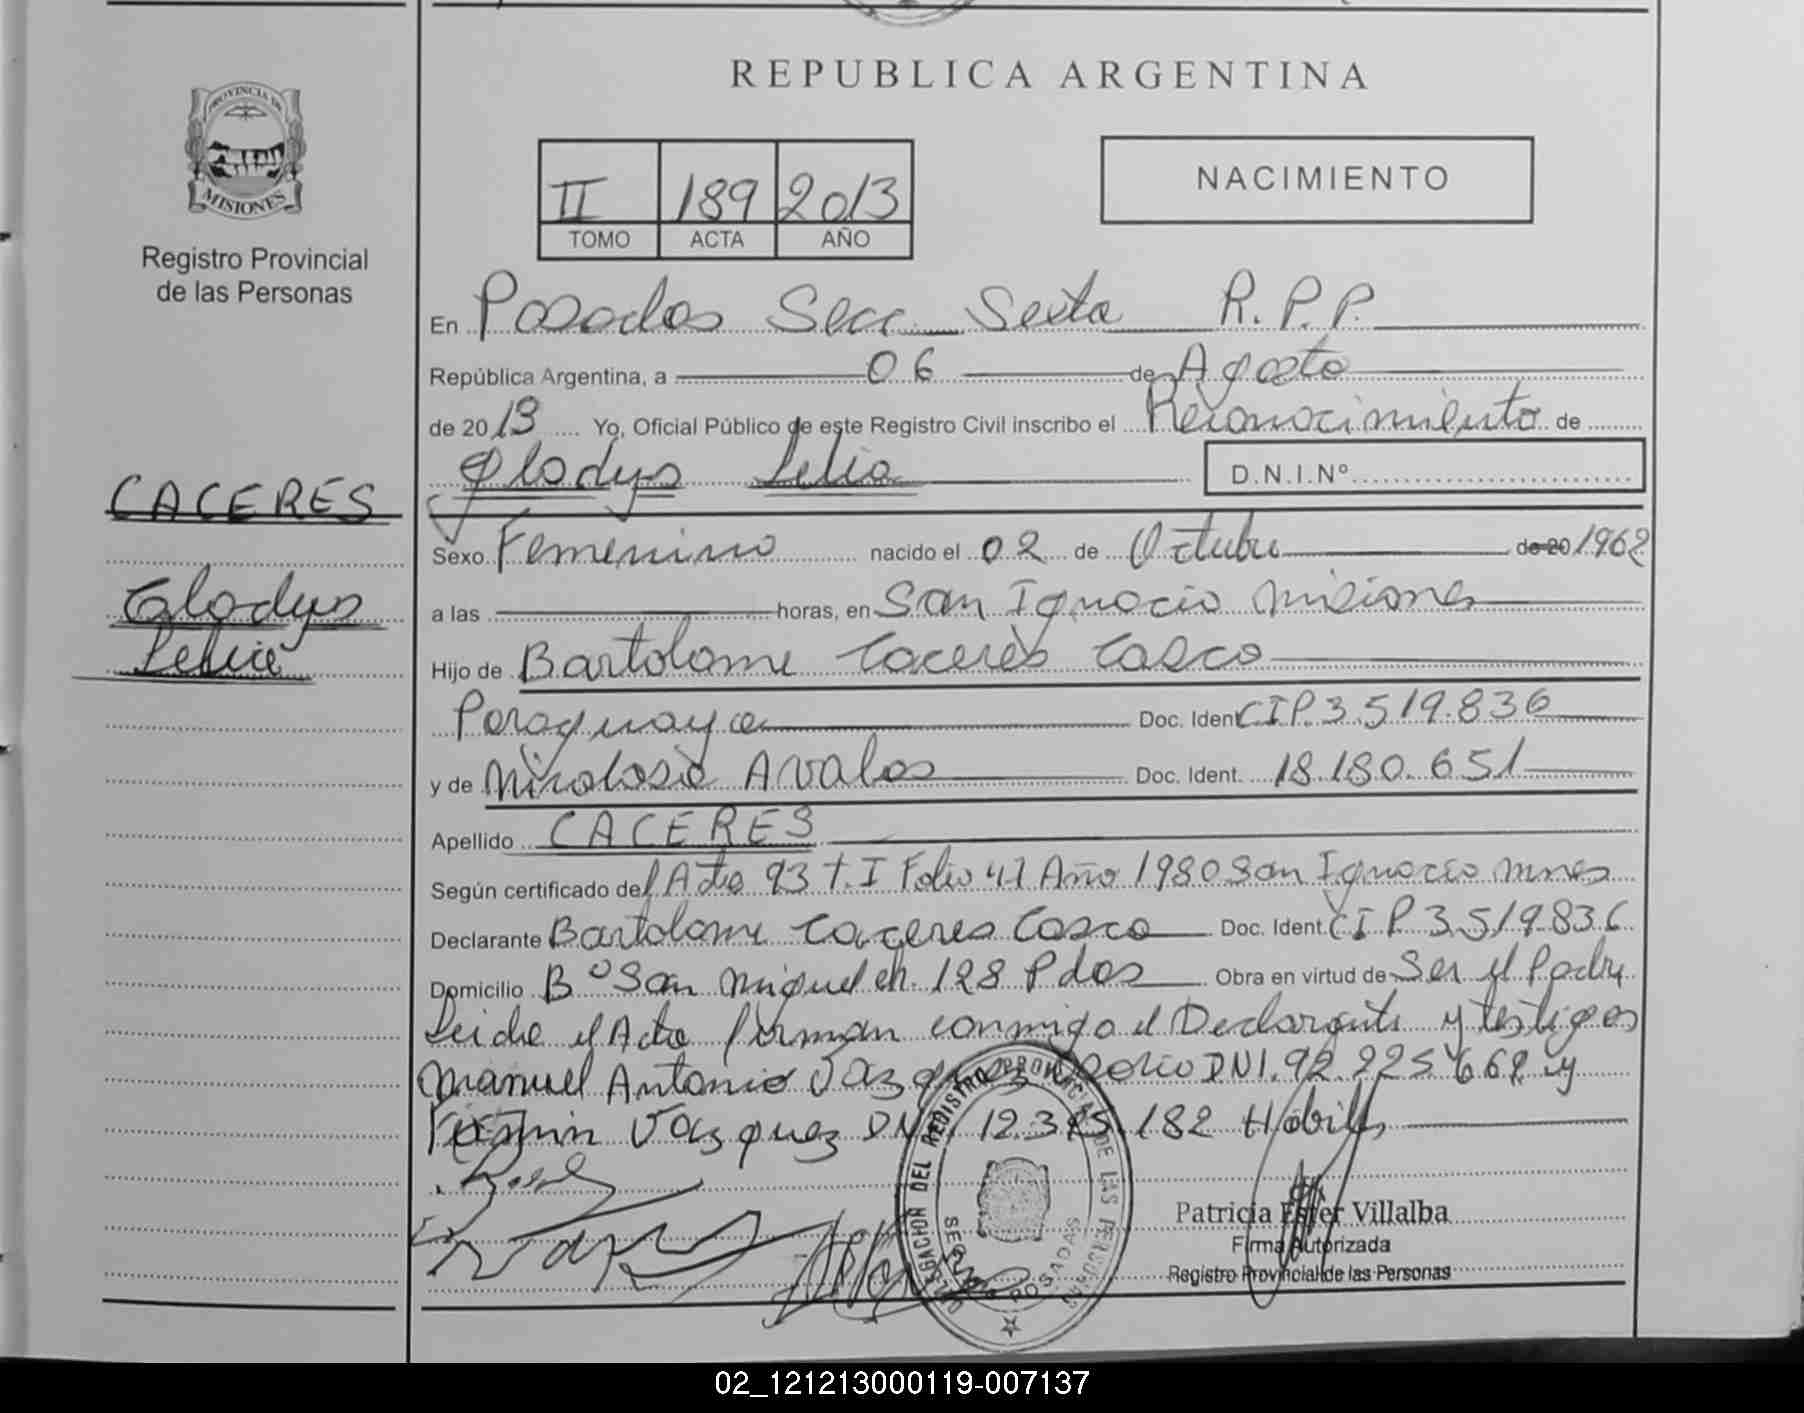 REPUBLICA ARGENTINA
PROVINCIA DE
MISIONES
Registro Provincial
de las Personas
II 189 2013
TOMO ACTA AÑO
NACIMIENTO
En Posadas Secc. Sexta R.P.P.
República Argentina, a 06 de Agosto
de 2013 Yo, Oficial Público de este Registro Civil inscribo el Reconocimiento de
Gladys Lelia
D.N.I.Nº
CACERES
Gladys
Sexo Femenino nacido el 02 de Octubre de 20 1962
a las horas, en San Ignacio Misiones
Hijo de Bartolome Caceres Casco
Paraguaya Doc. Ident. CIP. 3.519.836
y de Avalos Doc. Ident. 18.180.651
Apellido CACERES
Según certificado del Acta 93 T. I Folio 47 Año 1980 San Ignacio Mnes
Declarante Bartolome Caceres Casco Doc. Ident. CIP 3.519.836
Domicilio Bº San Miguel ch. 128 Pdas Obra en virtud de Ser el Padre
Leida el Acta firman conmigo el Declarante y testigos
Manuel Antonio Vazquez DNI. 92.225.662 y
Fermin Vazquez DNI 12.315.182 Habiles
DELEGACION DEL REGISTRO PROVINCIAL DE LAS PERSONAS
POSADAS
Patricia Ester Villalba
Firma Autorizada
Registro Provincial de las Personas
02_121213000119-007137